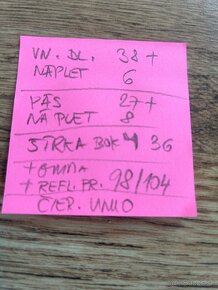 VN. DL. 38+
NÁPLET 6
PÁS 27+
NÁPLET 8
ŠÍRKA BOK 4 36
+ GUMA
+ REFL. PR. 98/104
ČIER. UNIO